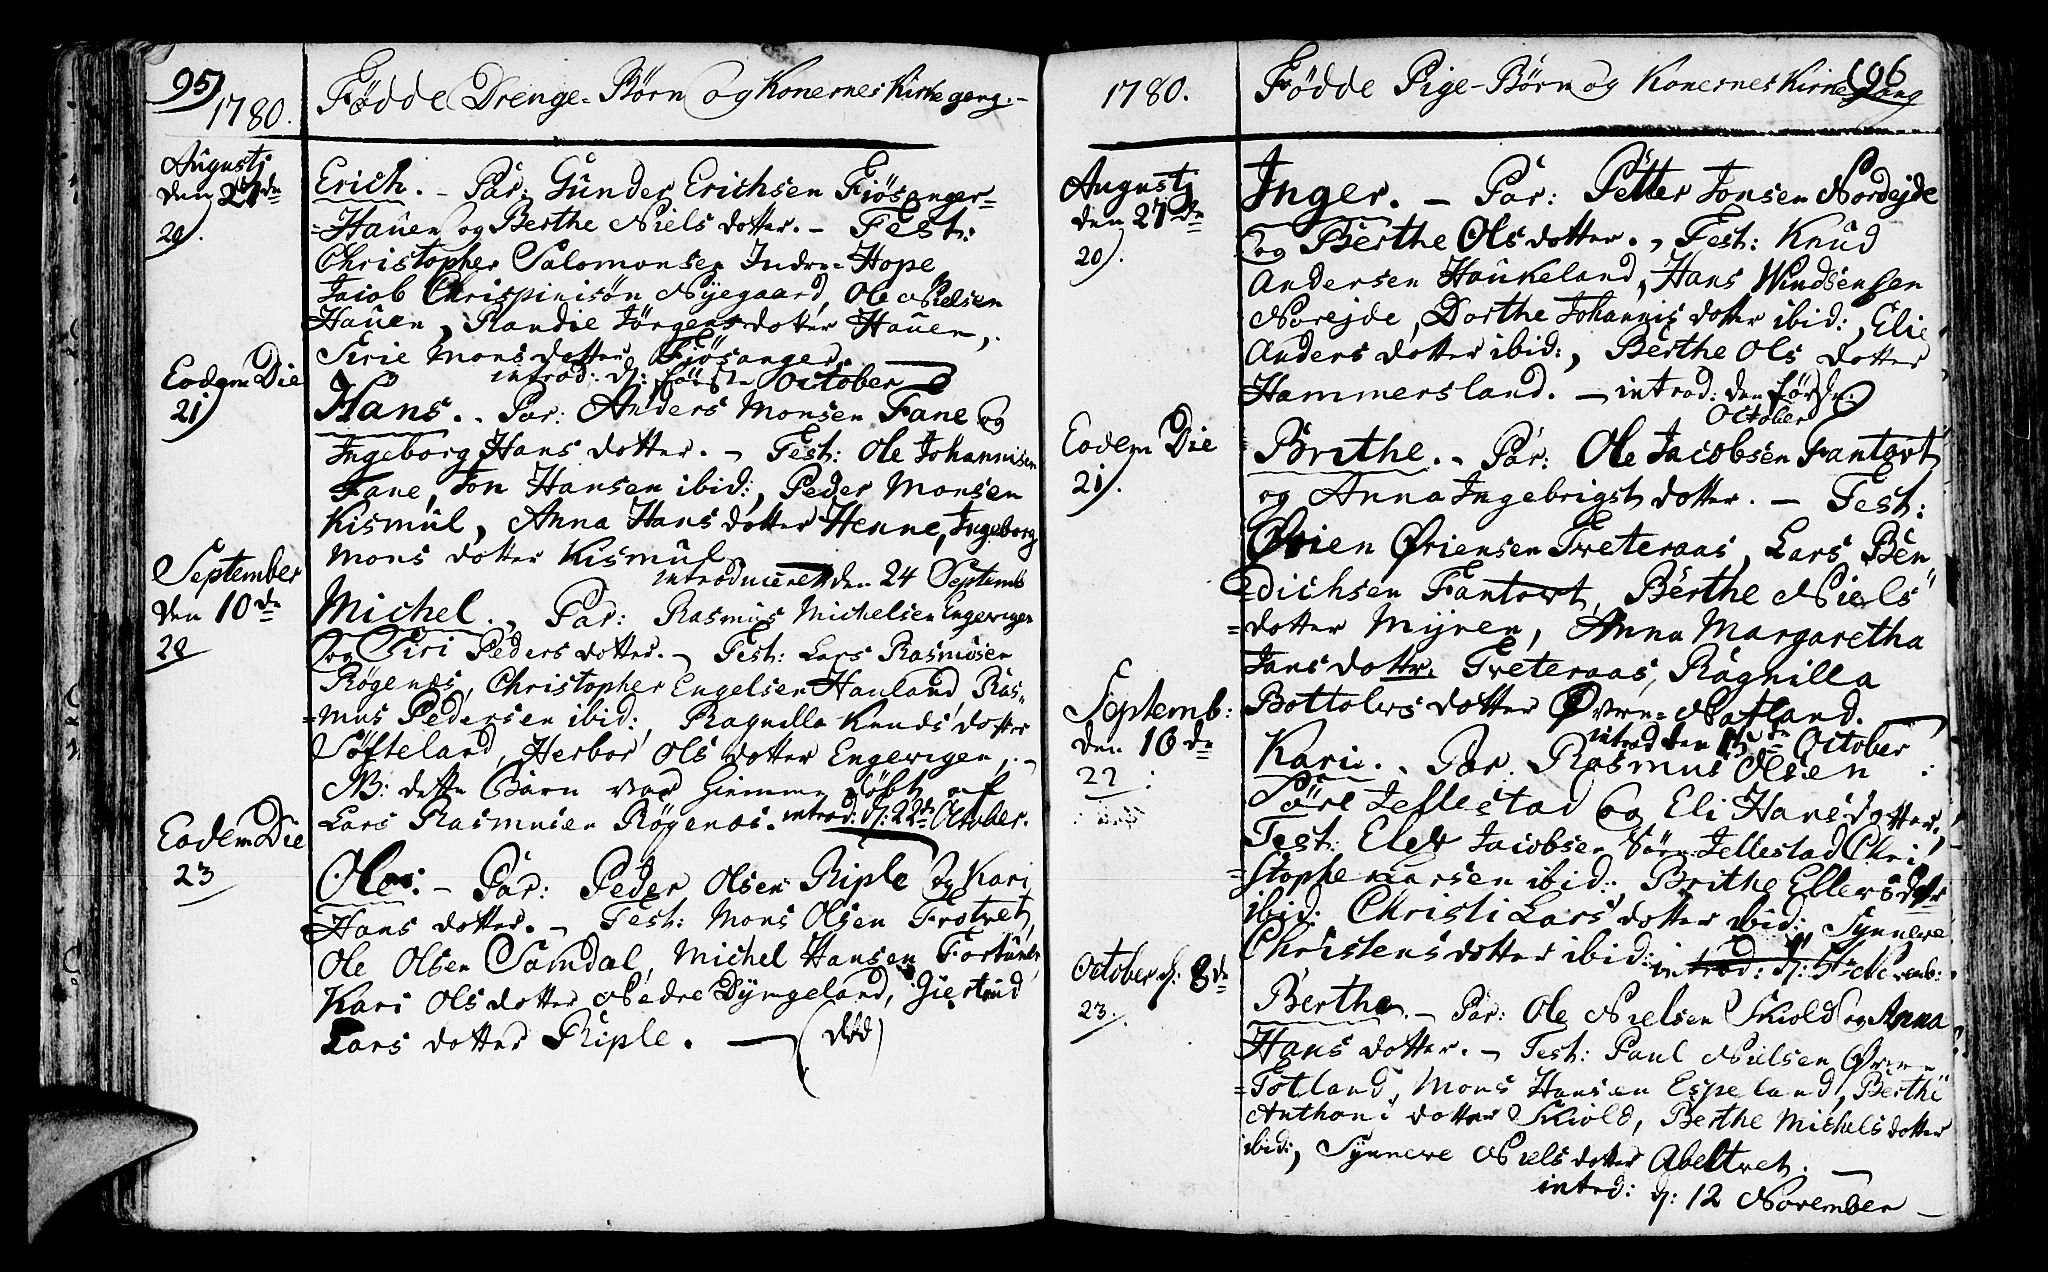 95)
1780.
Fødde Drenge-Børn og Konernes Kirkegang.-
Augustj
den 27de
20).
Erich. - Par: Gunder Erichsen Fiøsanger-
-Hauen og Berthe Niels dotter. - Test:
Christopher Salomonsen Indre-Hope
Jacob Chrispinisøn Nyegaard, Ole Nielsen
Hauen, Randie Jørgensdotter Hauen,
Sirie Mons dotter Fiøsanger
introd: d: første October
Eodem Die
21)
Hans. - Par: Anders Monsen Fane og
Ingeborg Hans dotter. - Test: Ole Johannisen
Fane, Jon Hansen ibid:, Peder Monsen
Kismul, Anna Hans dotter Henne, Ingeborg
Mons dotter Kismul
introduceret den 24 Septemb
September
den 10de
Michel. - Par: Rasmus Michelsen Engevigen
og Siri Peders dotter. - Test: Lars Rasmusen
Røgenes, Christopher Engelsen Hauland, Ras-
-mus Pedersen ibid:, Ragnilla Knuds dotter
Søfteland, Herbor Ols dotter Engevigen. -
NB: dette Barn var hiemme døbt af
Lars Rasmusen Røgenes. introd: d: 22de October.
Eodem Die
23
Ole. - Par: Peder Olsen Riple og Kari
Hans dotter. - Test: Mons Olsen Frotvet,
Ole Olsen Samdal, Michel Hansen Fortun
Kari Ols dotter Nedre Dyngeland, Giertrud
Lars dotter Riple. - (død)
1780.
Fødde Pige-Børn og Konernes Kirkegang
96
Augustj
den 27de
20).
Inger. - Par: Petter Jonsen Nordejde
og Berthe Olsdotter. - Test: Knud
Andersen Haukeland, Hans
Norejde, Dorthe Johannis dotter ibid:, Elie
Anders dotter ibid:, Berthe Ols dotter
Hammersland. - introd: den første
October
Eodem Die
21).
Brithe. - Par: Ole Jacobsen Fantovt
og Anna Ingebrigst dotter. - Test:
Ørien Øriensen Tveteraas, Lars Ben
-dichsen Fantovt, Berthe Niels
-dotter Myren, Anna Margaretha
Jansdotter Tveteraas, Ragnilla
Bottolvs dotter Øvre-Natland.
introd den October
Septemb:
den 10de
22
Kari. - Par: Rasmus Olsen
Søre Jellestad og Eli Hansdotter,
Test: Elev Jacobsen Søre Jellestad Chri
-stopher Larsen ibid:, Brithe Ellevsdotr
ibid: Christi Lars dotter ibid:, Synneve
Christensdotter ibid:
introd: d: 5te Novemb:
October d: 8de
23.
Berthe. - Par: Ole Nielsen Skiold og Anna
Hans dotter. - Test: Paul Nielsen Øvre
-Totland, Mons Hansen Espeland, Berthe
Anthoni dotter Skiold, Berthe Michels dotter
ibid:, Synneve Niels dotter Abeltvet. -
introd: d: 12 November -